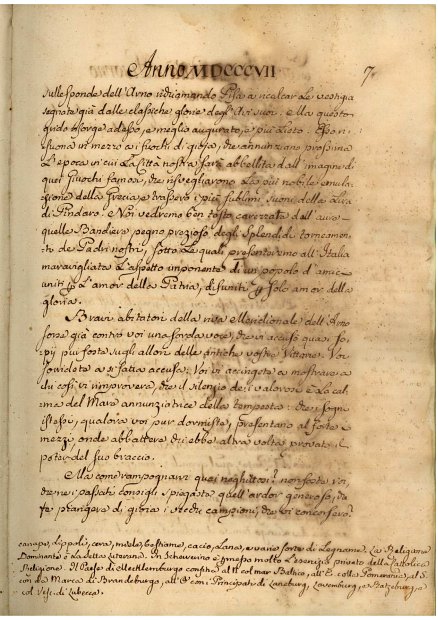 Anno MDCCCVII 7
sulle sponde dell'Arno richiamando Pisa a ricalcar le vestigia
segnate già dalle classiche glorie degl'Avi suoi. Ma questo
grido risorge adesso, e meglio augurato, e più lieto. Esso ri
suona in mezzo ai fuochi di gioja, che annunziano prossima
l'epoca in cui la Città nostra sarà abbellita dall'imagine di
quei Giuochi famosi, che risvegliarono la più nobile emula
zione della Grecia, e trassero i più sublimi suoni della Lira
di Pindaro. E Noi vedremo ben tosto carezzate dall'aure
quelle Bandiere pegno prezioso degli Splendidi torneamen
ti de Padri nostri, sotto le quali presentarono all'Italia
maravigliata l'aspetto imponente di un popolo d'amici
uniti per l'amor della Patria, disuniti per solo amor della
gloria.
Bravi abitatori della riva Meridionale dell'Arno
sorse già contro voi una sorda voce, che vi accusò quasi so
piti pur foste sugli allori delle antiche vostre Vittorie. Voi
sorridete a sì fatta accusa: Voi vi accingete a mostrare a
chi così vi rimprovera, che il silenzio dei valorosi è la cal
ma del Mare annunziatrice della tempesta: che i sogni
istessi, qualora voi pur dormiste, presentano al forte i
mezzi, onde abbattere chi ebbe altra volta provato il
poter del suo braccio.
Ma come rampognarvi quai neghittosi? non foste voi,
che nei passati consigli spiegaste quell'ardor generoso, che
fe piangere di gioia i vecchi campioni, che vi
canape, luppoli, cera, miele, bestiame, cacio, Lana, e varie sorte di Legname. La Religione
Dominante è la detta Luterana. In Schewerino è permesso molto l'esercizio privato della Cattolica
Religione. Il Paese di Mecklemburgo confina al N. col mar Baltico, all'E. colla Pomerania, al S.
con la Marca di Brandeburgo, all'O. coni Principati di Luneburg, Lavemburg, e Ratzeburg, e
col Vesc. di Lubecca.